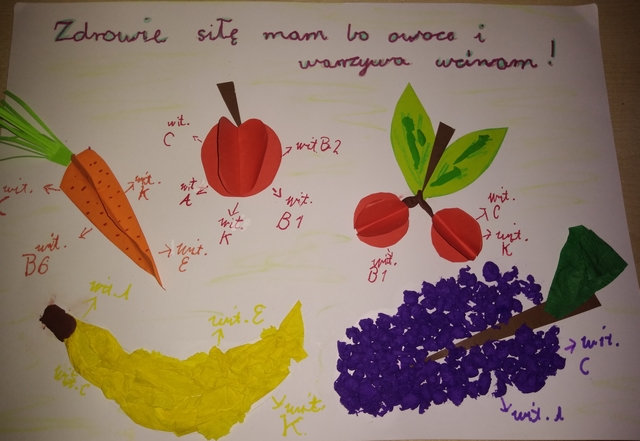 Zdrowie siłę mam bo owoce i
warzywa wcinam!
wit.
C
wit B2
wit
A
wit.
K
wit.
B1
wit.
K
wit.
B6
wit.
E
wit.
C
wit.
K
wit.
B1
wit. A
wit. E
wit. C
wit.
K
wit.
C
wit. A